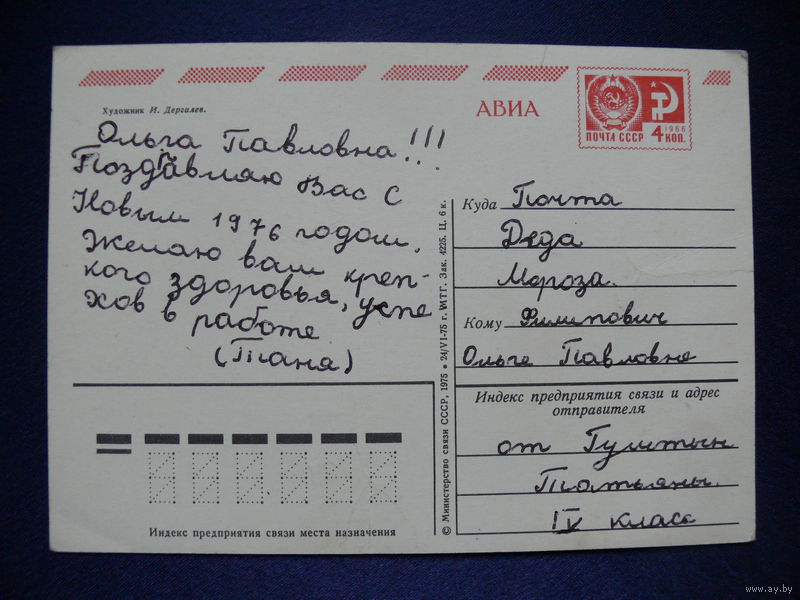 Художник И. Дергилев.
АВИА
ПОЧТА СССР
1966
4 КОП.
Ольга Павловна!!!
Поздавляю Вас С
Новым 1976 годом.
Желаю вам креп-
кого здоровья, успе
хов в работе
(Таня)
Куда Почта
Деда
Мороза.
Кому Филипович
Ольге Павловне
Индекс предприятия связи и адрес
отправителя
от
Татьяны.
IV класс
Индекс предприятия связи места назначения
© Министерство связи СССР, 1975 • 24/VI-75 г. МТГ. Зак. 4225. Ц. 6 к.
www.ay.by